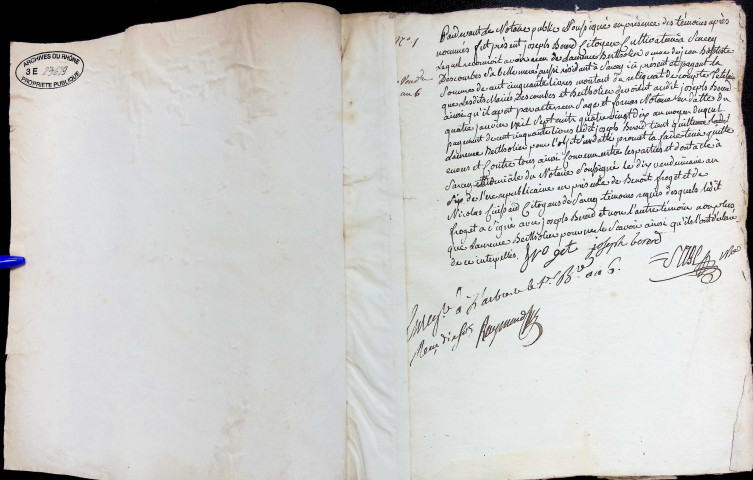 ARCHIVES DU RHÔNE
3 E
PROPRIÉTÉ PUBLIQUE
N° 1
an 6
Pardevant le Notaire public Soussigné en présence des témoins après
nommés fut présent joseph Berod Citoyen Cultivateur à Sarcey
Lequel reconnoit avoir reçu de Laurence Bertholier veuve de jean Baptiste
Descombes Sa belle mere aussi résidant à Sarcey ici présente et payant la
Somme de cent cinquante livres montant du reliquat de compte
que lesdits Mariés Descombes et Bertholier devoient audit joseph Berod
ainsi qu'il apert par acte reçu Sage et Notaire en datte du
quatre janvier mil Sept cent quatre vingt dix au moyen duquel
payement de cent cinquante livres ledit joseph Berod tient quitte
Laurence Bertholier pour l'objet promet la faire tenir quitte
envers et Contre tous, ainsi Convenu entre les parties et dont acte à
Sarcey du Notaire Soussigné le dix vendemiaire an
Six de l'ere republicaine en présence de Benoit froget et de
Nicolas Citoyens de Sarcey témoins requis desquels ledit
froget a Signé avec joseph Berod et non l'autre témoin non plus
que Laurence Bertholier pour ne le Savoir ainsi qu'ils l'ont déclaré
de ce interpellés.
froget joseph berod
à L'arbresle le 1er Bre an 6.
Raymond